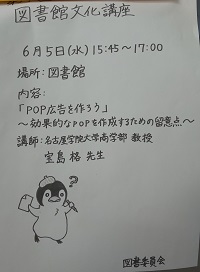 図書館文化講座
6月5日(水) 15:45～17:00
場所：図書館
内容：
「POP広告を作ろう」
～効果的なPOPを作成するための留意点～
講師：名古屋学院大学商学部 教授
宝島 格 先生
?
図書委員会